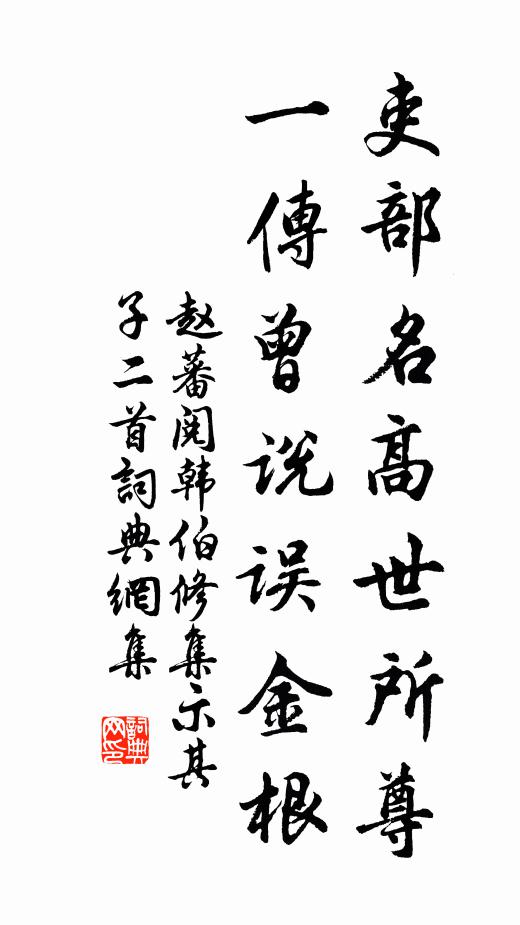 吏部名高世所尊
一傳曾説误金根
赵蕃阅韩伯修集示其
子二首詞典網集
詞典网印